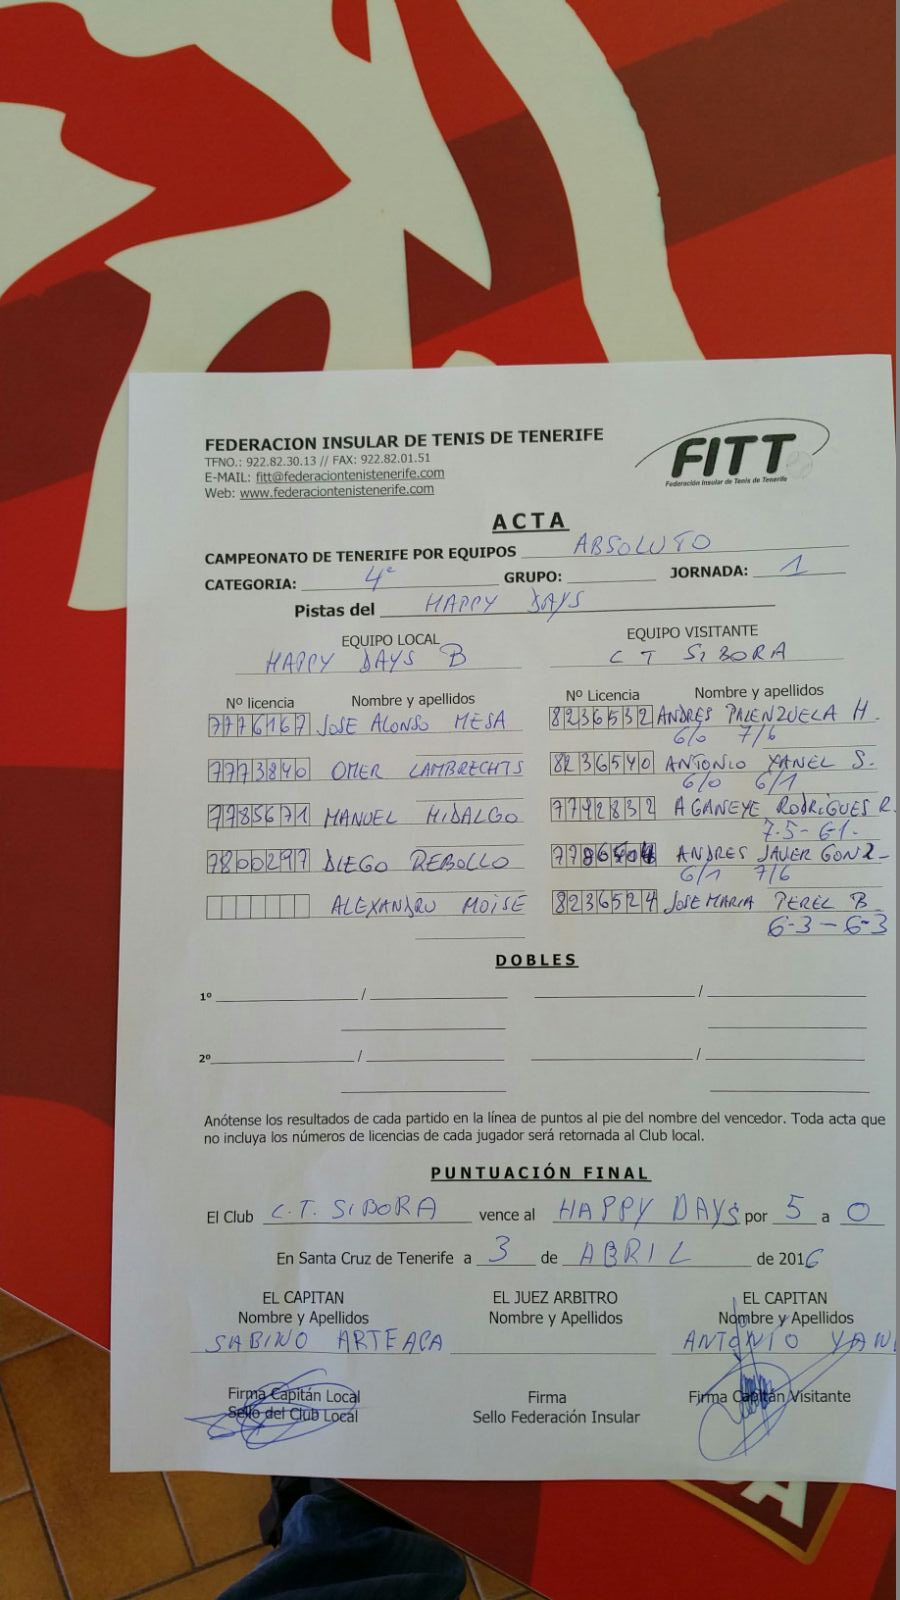 FEDERACION INSULAR DE TENIS DE TENERIFE
TFNO.: 922.82.30.13 // FAX: 922.82.01.51
E-MAIL: fitt@federaciontenistenerife.com
Web: www.federaciontenistenerife.com
FITT
Federación Insular de Tenis de Tenerife
ACTA
CAMPEONATO DE TENERIFE POR EQUIPOS ABSOLUTO
CATEGORIA: 4ª GRUPO: JORNADA: 1
Pistas del HAPPY DAYS
EQUIPO LOCAL EQUIPO VISITANTE
HAPPY DAYS B C T SIBORA
Nº licencia Nombre y apellidos Nº Licencia Nombre y apellidos
7776167 JOSE ALONSO MESA 8236532 ANDRES PALENZUELA H.
6/0 7/6
7773840 OMER LAMBRECHTS 8236540 ANTONIO YANEL S.
6/0 6/1
7785671 MANUEL HIDALGO 7792832 AGANEYE RODRIGUES R.
7-5-6-1.
7800297 DIEGO REBOLLO ANDRES JAVIER GONZ-
6/1 7/6
ALEXANDRU MOISE 8236524 JOSE MARIA PEREL B
6-3-6-3
DOBLES
1º / /
2º / /
Anótense los resultados de cada partido en la línea de puntos al pie del nombre del vencedor. Toda acta que
no incluya los números de licencias de cada jugador será retornada al Club local.
PUNTUACIÓN FINAL
El Club C.T. SIBORA vence al HAPPY DAYS por 5 a 0
En Santa Cruz de Tenerife a 3 de ABRIL de 2016
EL CAPITAN EL JUEZ ARBITRO EL CAPITAN
Nombre y Apellidos Nombre y Apellidos Nombre y Apellidos
SABINO ARTEAGA ANTONIO YAN
Firma Capitán Local Firma Firma Capitán Visitante
Sello del Club Local Sello Federación Insular